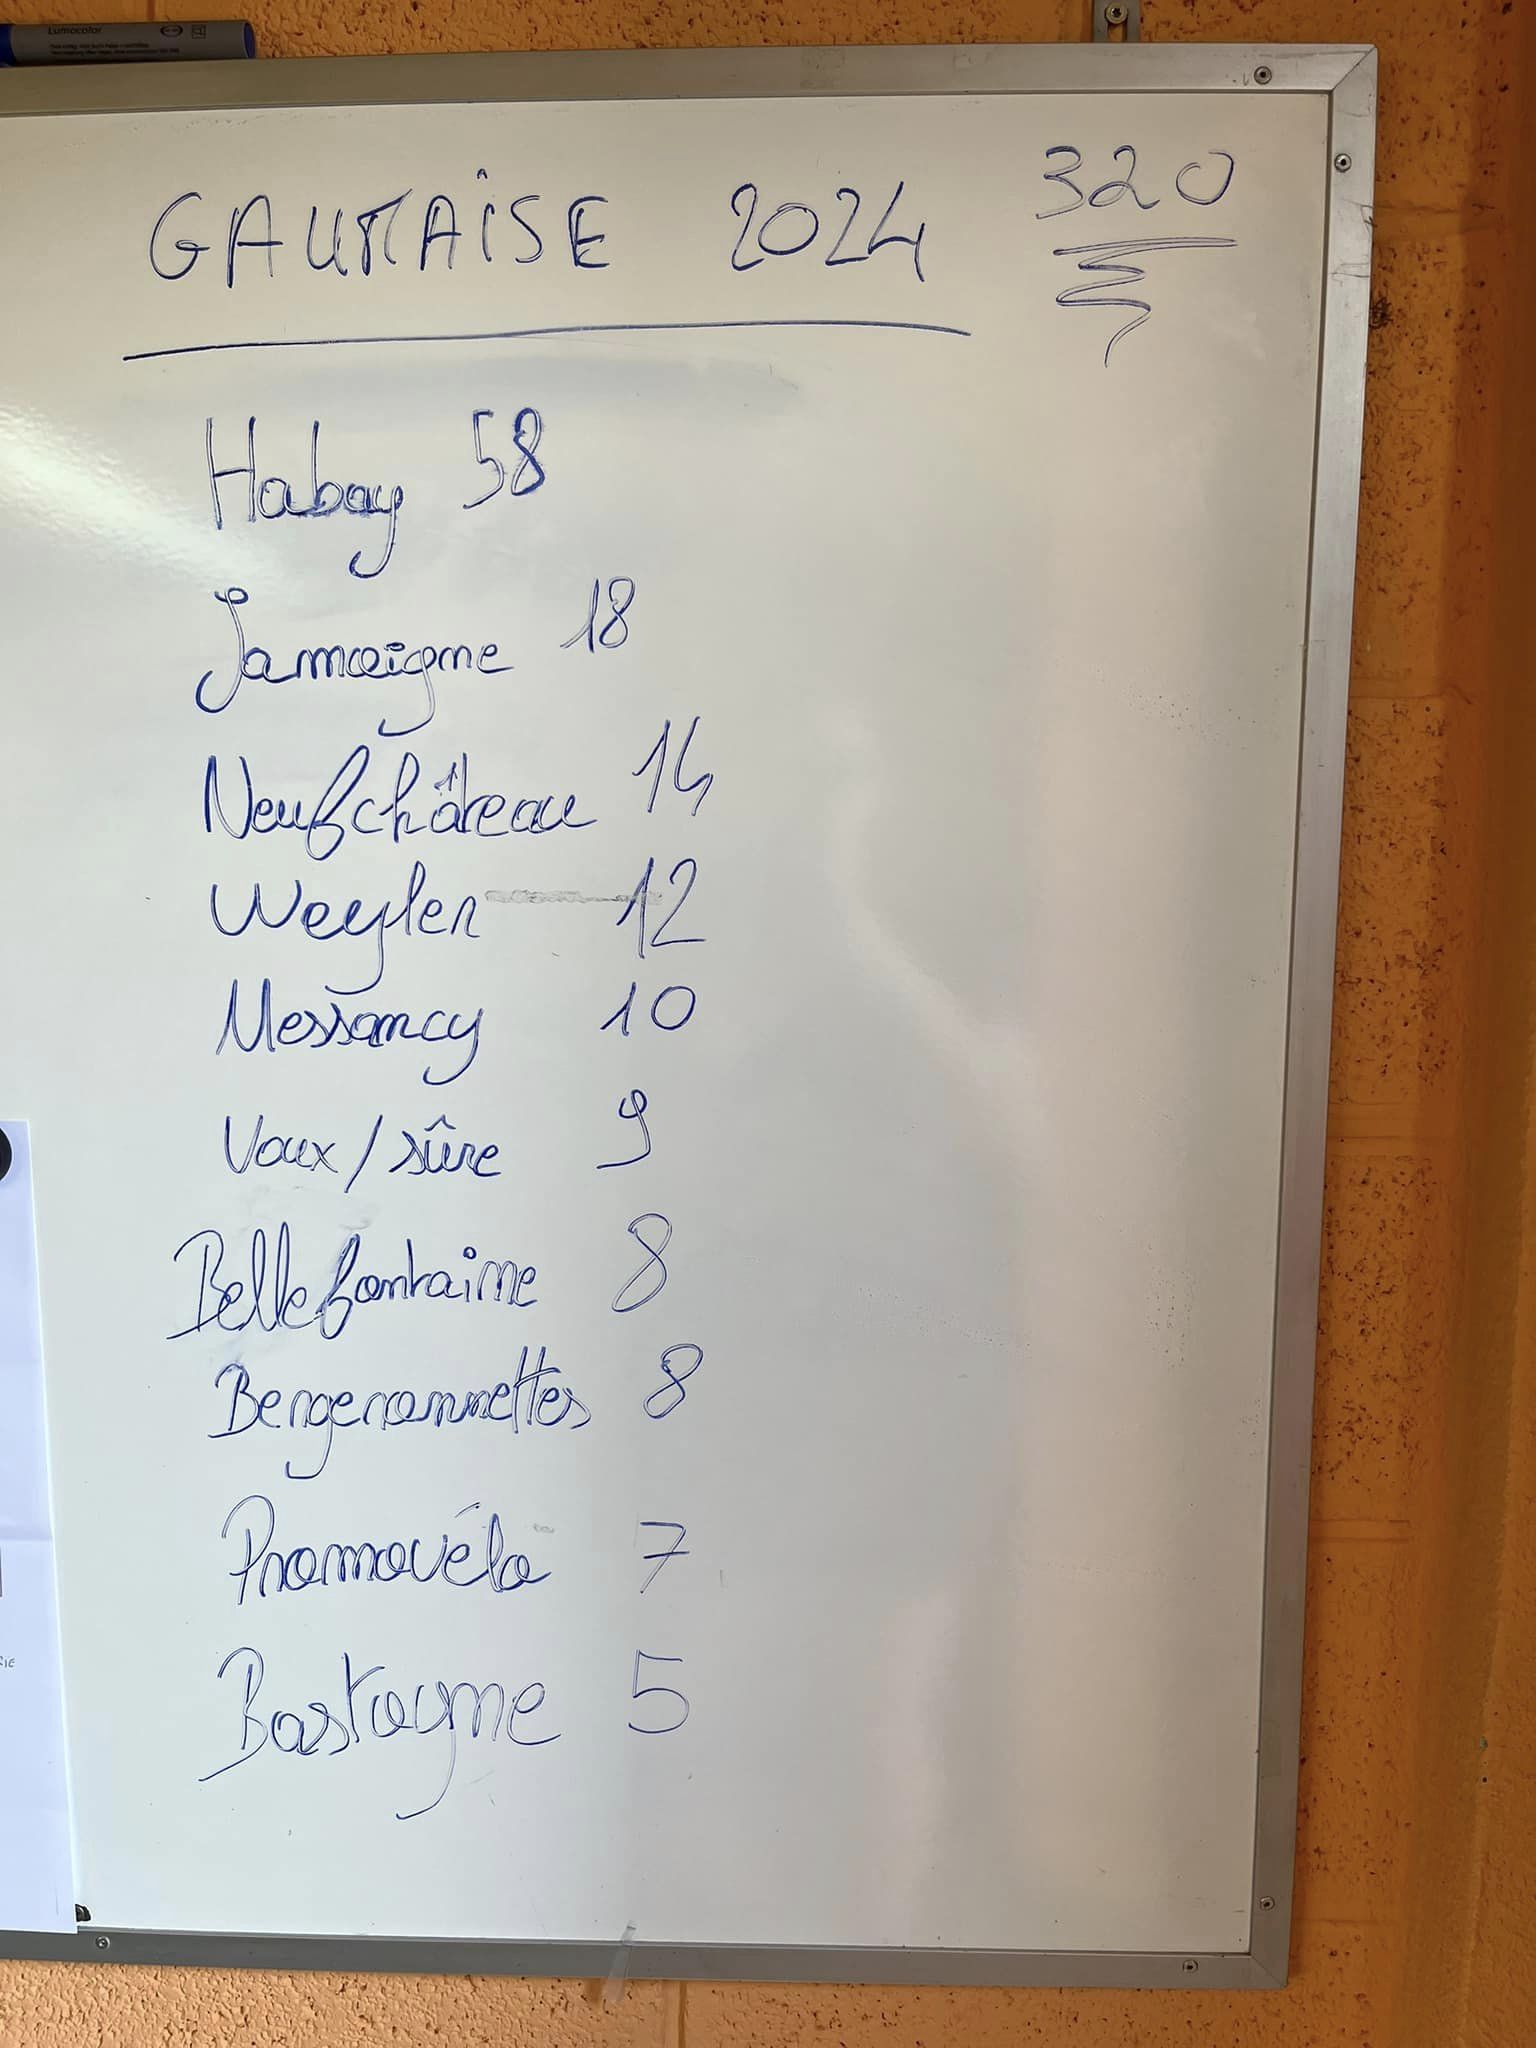 Lumocolor
GAUMAISE 2024 320
Habay 58
Jamoigne 18
Neufchâteau 14
Weyler 12
Messancy 10
Vaux/sûre 9
Bellefontaine 8
Bergeronnettes 8
Promovélo 7
Bastogne 5
RIE